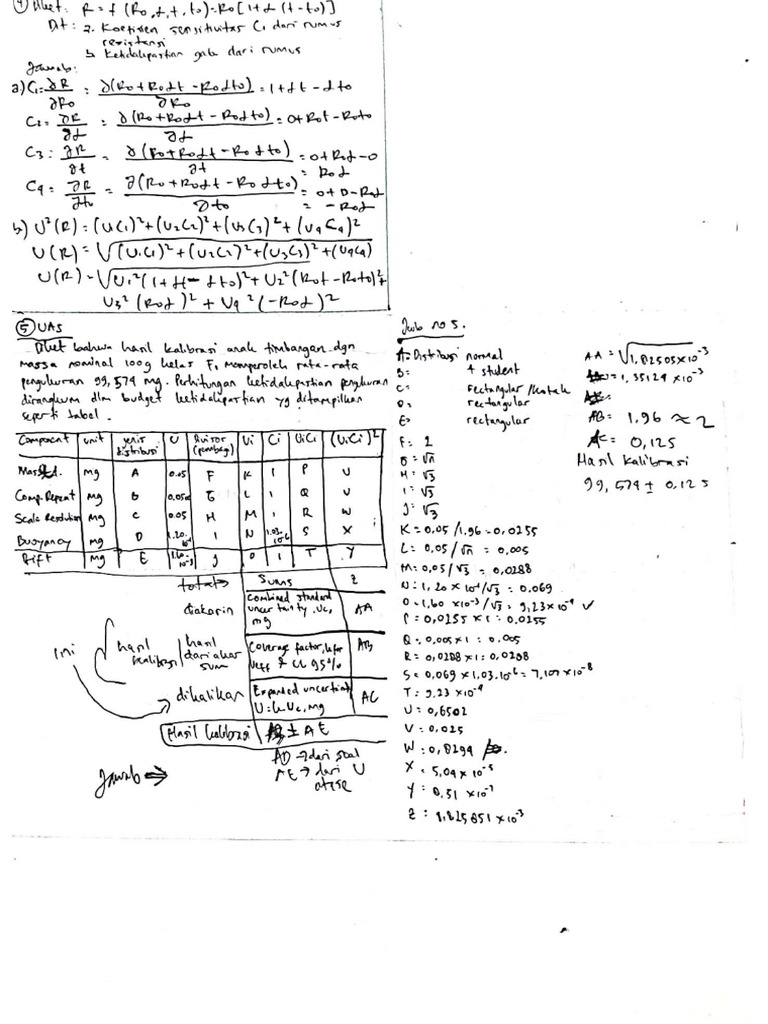 ④ Diket: R = f (Ro, α, t, to) = Ro [1 + α (t - to)]
Dit: a. Koefisien sensitivitas Ci dari rumus
resistansi
b. Ketidakpastian gab dari rumus
Jawab:
a) C₁ = ∂R/∂Ro = ∂(Ro + Roαt - Roαto)/∂Ro = 1 + αt - αto
C₂ = ∂R/∂α = ∂(Ro + Roαt - Roαto)/∂α = 0 + Rot - Roto
C₃ : ∂R/∂t = ∂(Ro + Roαt - Roαto)/∂t = 0 + Roα - 0
= Roα
C₄ = ∂R/∂to = ∂(Ro + Roαt - Roαto)/∂to = 0 + 0 - Roα
= -Roα
b) U²(R) = (U₁C₁)² + (U₂C₂)² + (U₃C₃)² + (U₄C₄)²
U(R) = √(U₁C₁)² + (U₂C₂)² + (U₃C₃)² + (U₄C₄)
U(R) = √U₁²(1 + αt - αto)² + U₂²(Rot - Roto)² +
U₃²(Roα)² + U₄²(-Roα)²
⑤ UAS
Diket bahwa hasil kalibrasi anak timbangan dgn
massa nominal 100g kelas F₁ memperoleh rata-rata
pengukuran 99,579 mg. Perhitungan ketidakpastian pengukuran
dirangkum dlm budget ketidakpastian yg ditampilkan
seperti tabel.
Component unit jenis distribusi U Divisor (pembagi) Ui Ci UiCi (UiCi)²
Mass std. mg A 0.05 F K 1 P U
Comp. Repeat mg B 0.05 G L 1 Q V
Scale Resolution mg C 0.05 H M 1 R W
Buoyancy mg D 1.20·10⁻¹ I N 1.03·10⁻⁶ S X
Drift mg E 1.60·10⁻³ J O 1 T Y
total → Sums Z
diakarin Combined standard uncertainty, Uc, mg AA
ini hasil kalibrasi / hasil dari akar sum Coverage factor, k for Veff & CL 95% AB
dikalikan Expanded uncertainty U = k·Uc, mg AC
Hasil kalibrasi AD ± AE
AD → dari soal
AE → dari U
Jawab ⇒
Jwb no 5.
A = Distribusi normal
B = t student
C = rectangular / kotak
D = rectangular
E = rectangular
F = 2
G = √n
H = √3
I = √3
J = √3
K = 0,05 / 1,96 = 0,0255
L = 0,05 / √n = 0,005
M = 0,05 / √3 = 0,0288
N = 1,20 × 10⁻¹ / √3 = 0,069
O = 1,60 × 10⁻³ / √3 = 9,23 × 10⁻⁴ ✓
P = 0,0255 × 1 = 0,0255
Q = 0,005 × 1 = 0,005
R = 0,0288 × 1 = 0,0288
S = 0,069 × 1,03·10⁻⁶ = 7,107 × 10⁻⁸
T = 9,23 × 10⁻⁴
U = 0,6502
V = 0,025
W = 0,8294
X = 5,04 × 10⁻⁵
Y = 8,51 × 10⁻⁷
Z = 1,825851 × 10⁻³
AA = √1,82505 × 10⁻³
= 1,35129 × 10⁻³
AB = 1,96 ≈ 2
AC = 0,125
Hasil Kalibrasi
99,579 ± 0,125